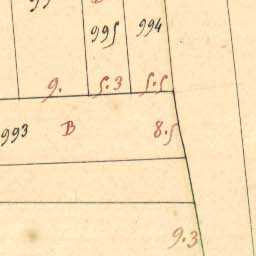 995 994
9. 5.3 5.5
993 B 8.5
9.3